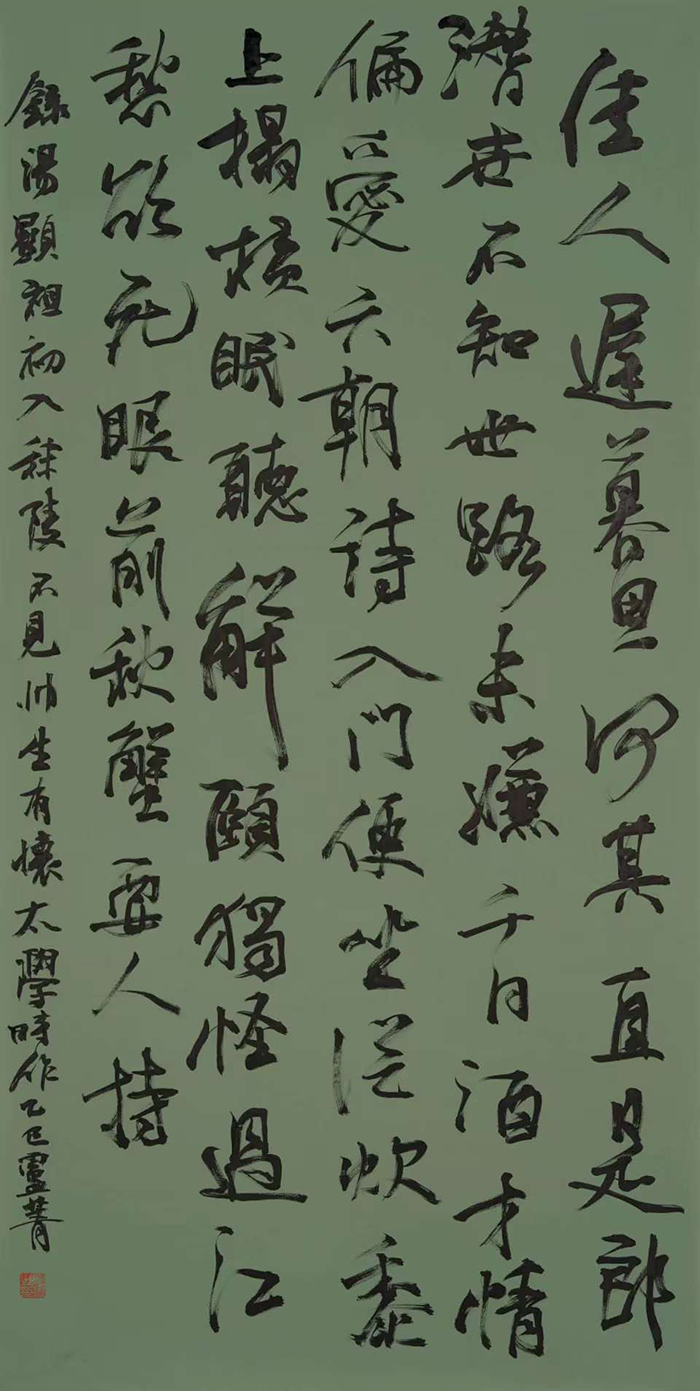 佳人遲暮思何其直是郎
潛世不知世路未嫌千日酒才情
偏愛六朝詩入門便坐從炊黍
上榻橫眠聽解頤獨怪過江
愁欲死眼前秋蟹要人持
錄湯顯祖初入秣陵不見帥生有懷太學時作乙巳菁